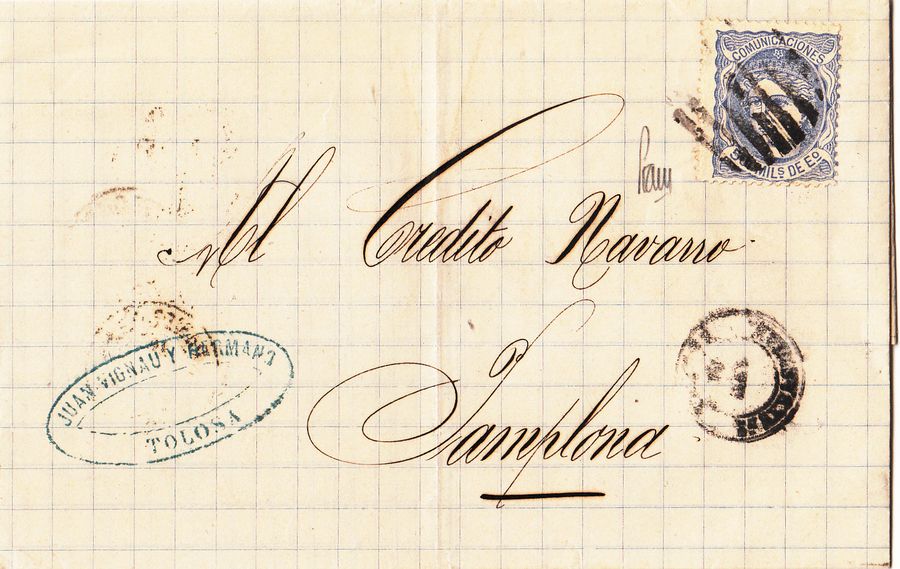 COMUNICACIONES
MILS DE Eo
Al Credito Navarro
Pamplona
JUAN VIGNAU Y HERMANO
TOLOSA